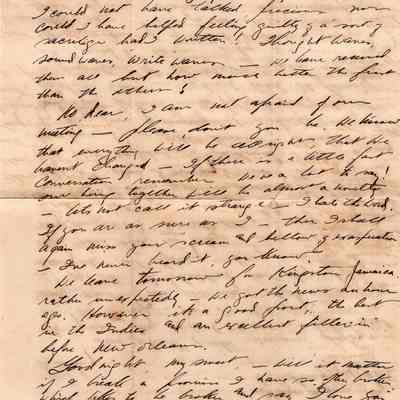 I could not have talked precious now
could I have helped feeling guilty of a sort of
sacrilege had I written! Thought waves,
sound waves, write waves — we have reversed
them all but how much more the first
than the others!
No dear, I am not afraid of our
meeting — please don't you be. We know
that everything will be all right, that we
haven't changed — If there is a little
conversation remember we've a lot to say!
our being together will be almost a novelty
— lets not call it strange — I hate the word.
If you are as sure as I — then I shall
again miss your scream and bellow of exasperation
— I've never heard it, you know.
We leave tomorrow for Kingston Jamaica
rather unexpectedly — we got the news an hour
ago. However its a good port, the best
in the Indies and an excellent filler in
before New Orleans.
Goodnight, my sweet — will it matter
if I break a promise I have so often
which likes to be broken and say I love you